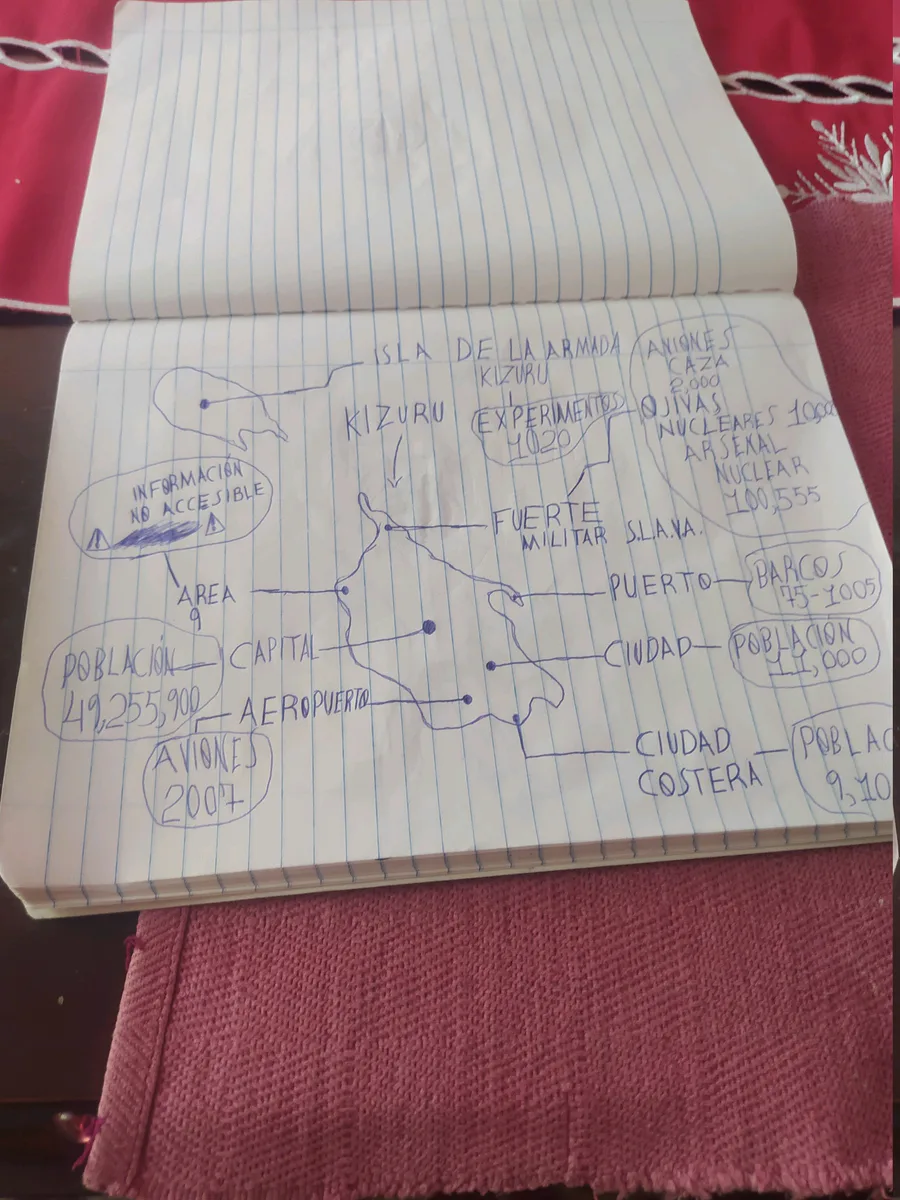 ISLA DE LA ARMADA
KIZURU
KIZURU
EXPERIMENTOS
1020
ANIONES
CAZA
2,000
OJIVAS
NUCLEARES
ARSENAL
NUCLEAR
100,555
INFORMACIÓN
NO ACCESIBLE
FUERTE
MILITAR S.L.A.V.A.
AREA
9
PUERTO
BARCOS
75-1005
POBLACIÓN
49,255,900
CAPITAL
CIUDAD
POBLACIÓN
11,000
AEROPUERTO
AVIONES
2007
CIUDAD
COSTERA
POBLAC
9,10